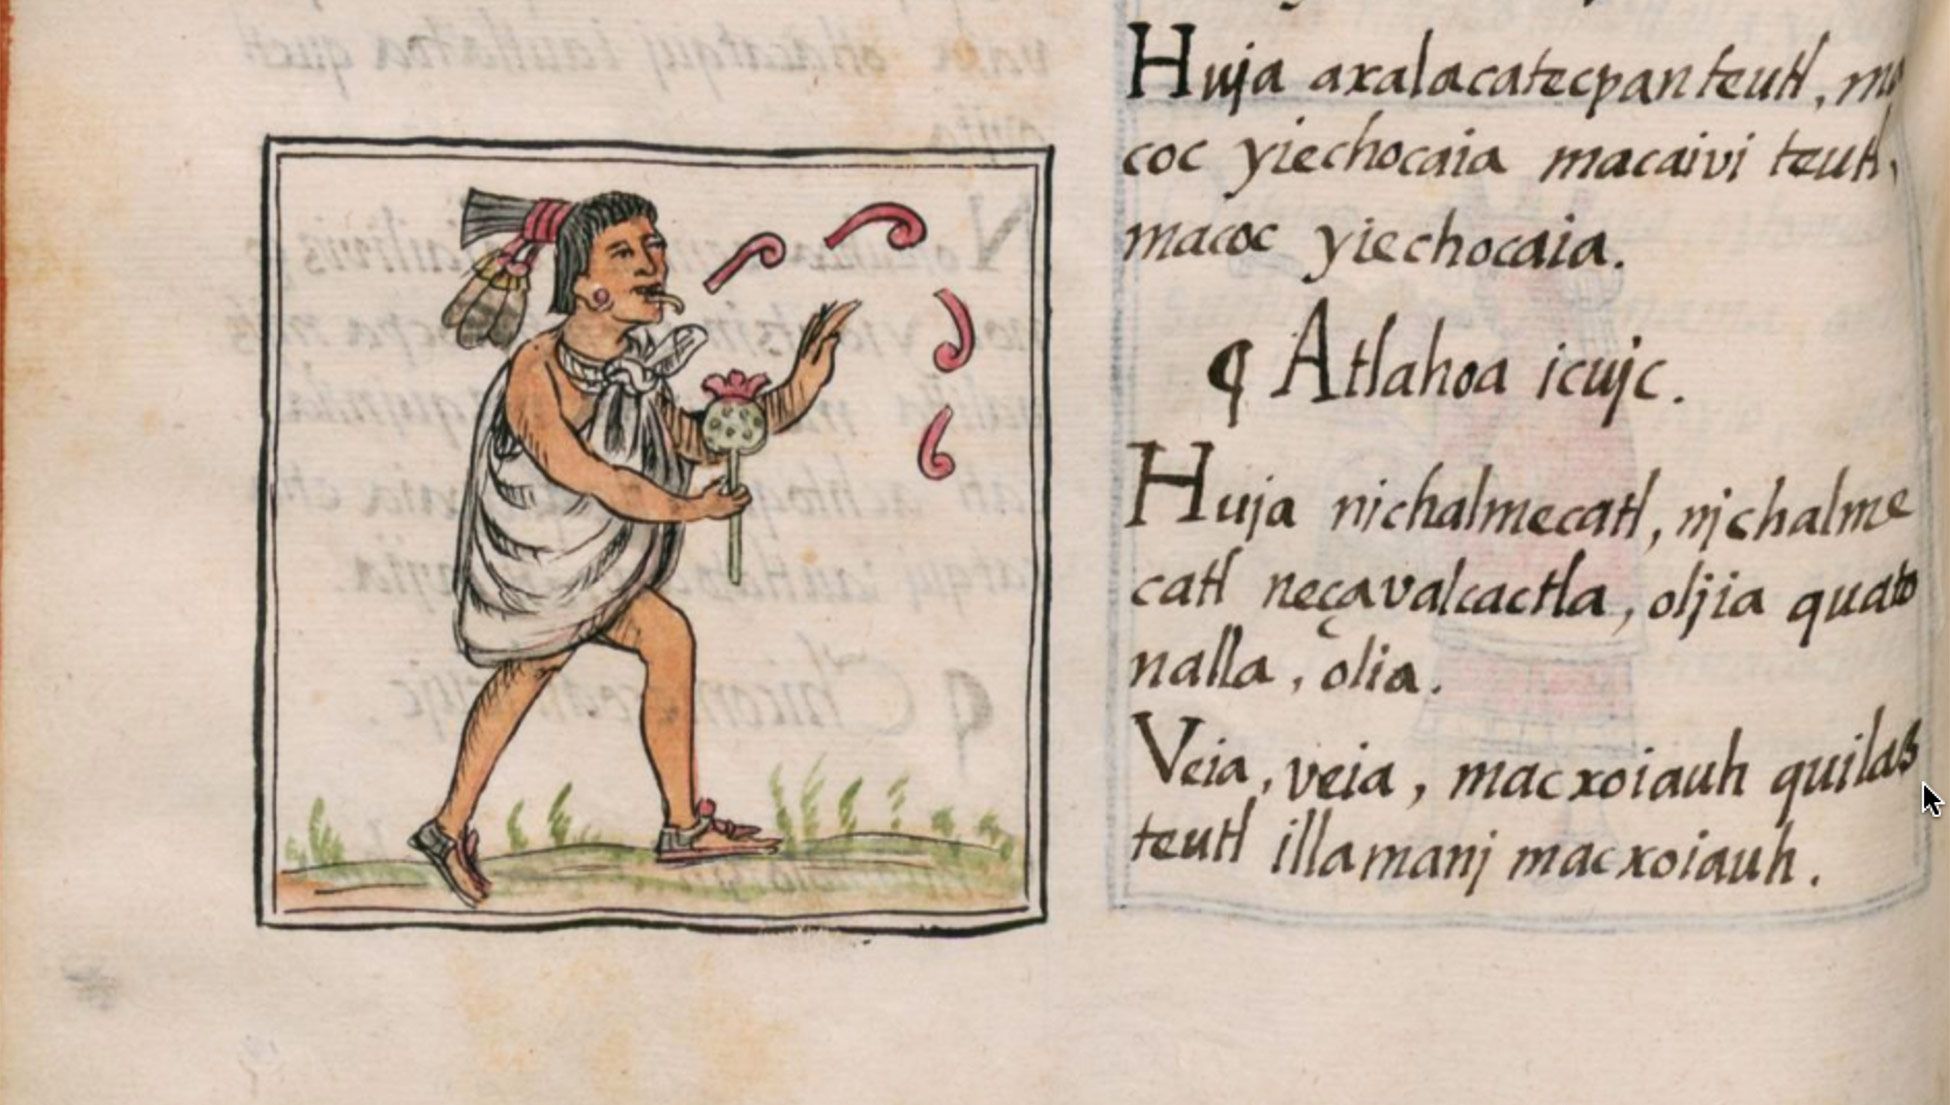 Huja axalacatecpan teutl, ma
coc yiechocaia macaivi teutl,
macoc yiechocaia.
¶ Atlahoa icujc.
Huja nichalmecatl, njchalme
catl neçavalcactla, oljia quato
nalla, olia.
Veia, veia, macxoiauh quilaz
teutl illamanj macxoiauh.